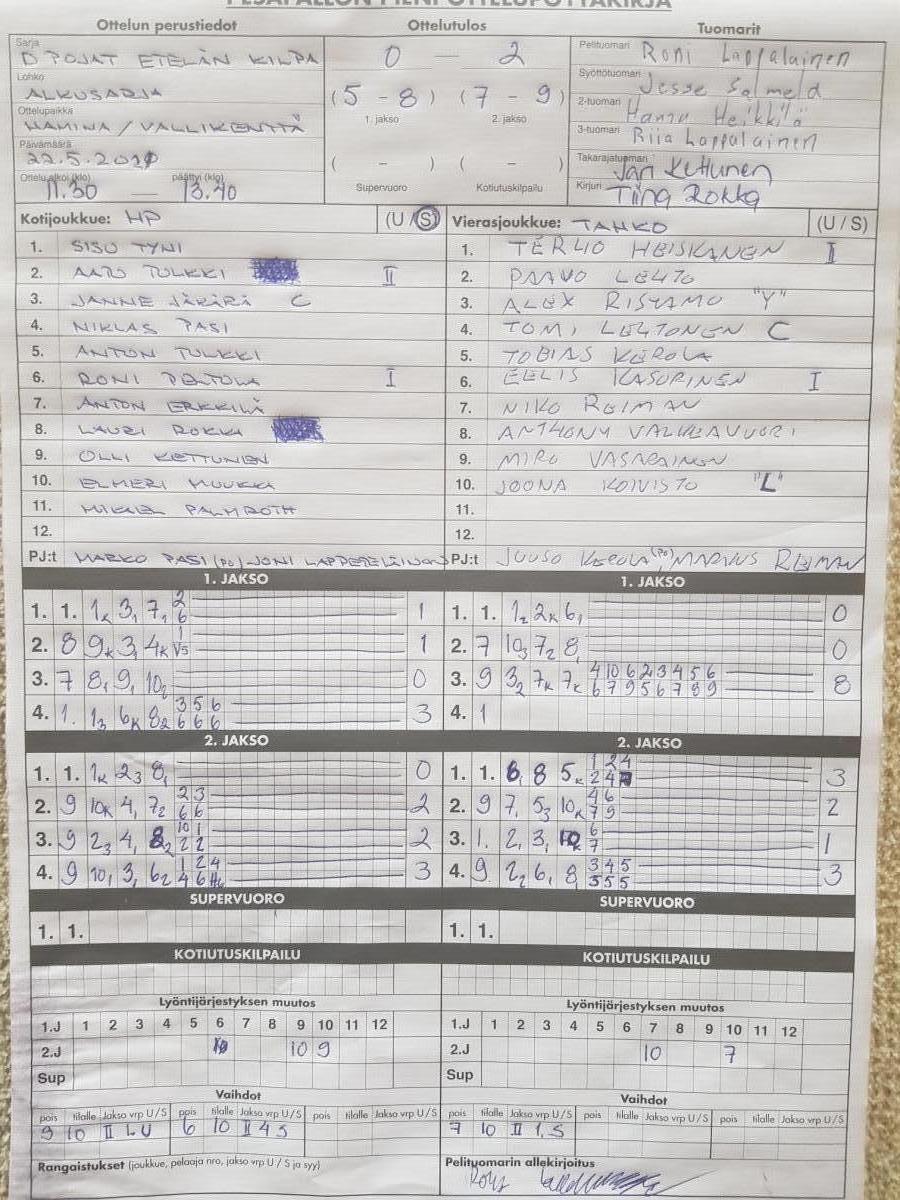 PESÄPALLON PIENI OTTELUPÖYTÄKIRJA
Ottelun perustiedot
Ottelutulos
Tuomarit
Sarja D POJAT ETELÄN KILPA
Lohko ALKUSARJA
Ottelupaikka HAMINA / VALLIKENTTÄ
Päivämäärä 22.5.
Ottelu alkoi (klo) 11.30 — päättyi (klo) 13.40
0 — 2
(5 - 8) (7 - 9)
1. jakso 2. jakso
( - ) ( - )
Supervuoro Kotiutuskilpailu
Pelituomari Roni Lappalainen
Syöttötuomari Jesse Salmela
2-tuomari Hannu Heikkilä
3-tuomari Riia Lappalainen
Takarajatuomari Jari Kettunen
Kirjuri Tiina Rokka
Kotijoukkue: HP (U/S)
1. SISU TYNI
2. AATU TULKKI II
3. JANNE JÄKÄRÄ C
4. NIKLAS PASI
5. ANTON TULKKI
6. RONI PELTOLA I
7. ANTON ERKKILÄ
8. LAURI ROKKA
9. OLLI KETTUNEN
10. ELMERI MUUKKA
11. MIKAEL PALMROTH
12.
PJ:t MARKO PASI (PO) JONI
Vierasjoukkue: TAHKO (U/S)
1. HEISKANEN II
2. PAAVO LEHTO
3. ALEX RISTAMO "Y"
4. TOMI LEHTONEN C
5. TOBIAS KEROLA
6. EELIS KASURINEN I
7. NIKO REIMAN
8. ANTHONY VALKEAVUORI
9. MIRO VASARAINEN
10. JOONA KOIVISTO "L"
11.
12.
PJ:t JUUSO KEROLA (PO), MARKUS REIMAN
1. JAKSO
1. 1. 1K 3, 7, 2 1
6
2. 8 9K 3, 4K 1 1
V5
3. 7 8, 9, 10 0
4. 1. 13 6K 82 3 5 6 3
6 6 6
1. JAKSO
1. 1. 12 2K 6, 0
2. 7 103 72 8, 0
3. 9 32 7K 7K 4 10 6 2 3 4 5 6 8
6 7 9 5 6 7 8 9
4. 1
2. JAKSO
1. 1. 1K 23 8, 0
2. 9 10K 4, 72 2 3 2
6 6
3. 9 23 4, 82 10 1 2
2 2
4. 9 10, 3, 62 1 2 4 3
4 6
2. JAKSO
1. 1. 6, 8 5K 1 2 4 3
2 4
2. 9 7, 53 10K 4 6 2
7 9
3. 1. 2, 3, 10K 6 1
7
4. 9 22 6, 8, 3 4 5 3
5 5 5
SUPERVUORO
1. 1.
SUPERVUORO
1. 1.
KOTIUTUSKILPAILU
KOTIUTUSKILPAILU
Lyöntijärjestyksen muutos
1.J 1 2 3 4 5 6 7 8 9 10 11 12
2.J 10 9
Sup
Lyöntijärjestyksen muutos
1.J 1 2 3 4 5 6 7 8 9 10 11 12
2.J 10 7
Sup
Vaihdot
pois tilalle Jakso vrp U/S pois tilalle Jakso vrp U/S pois tilalle Jakso vrp U/S
9 10 II 1.U 6 10 II 4 S
Vaihdot
pois tilalle Jakso vrp U/S pois tilalle Jakso vrp U/S pois tilalle Jakso vrp U/S
7 10 II 1.S
Rangaistukset (joukkue, pelaaja nro, jakso vrp U / S ja syy)
Pelituomarin allekirjoitus